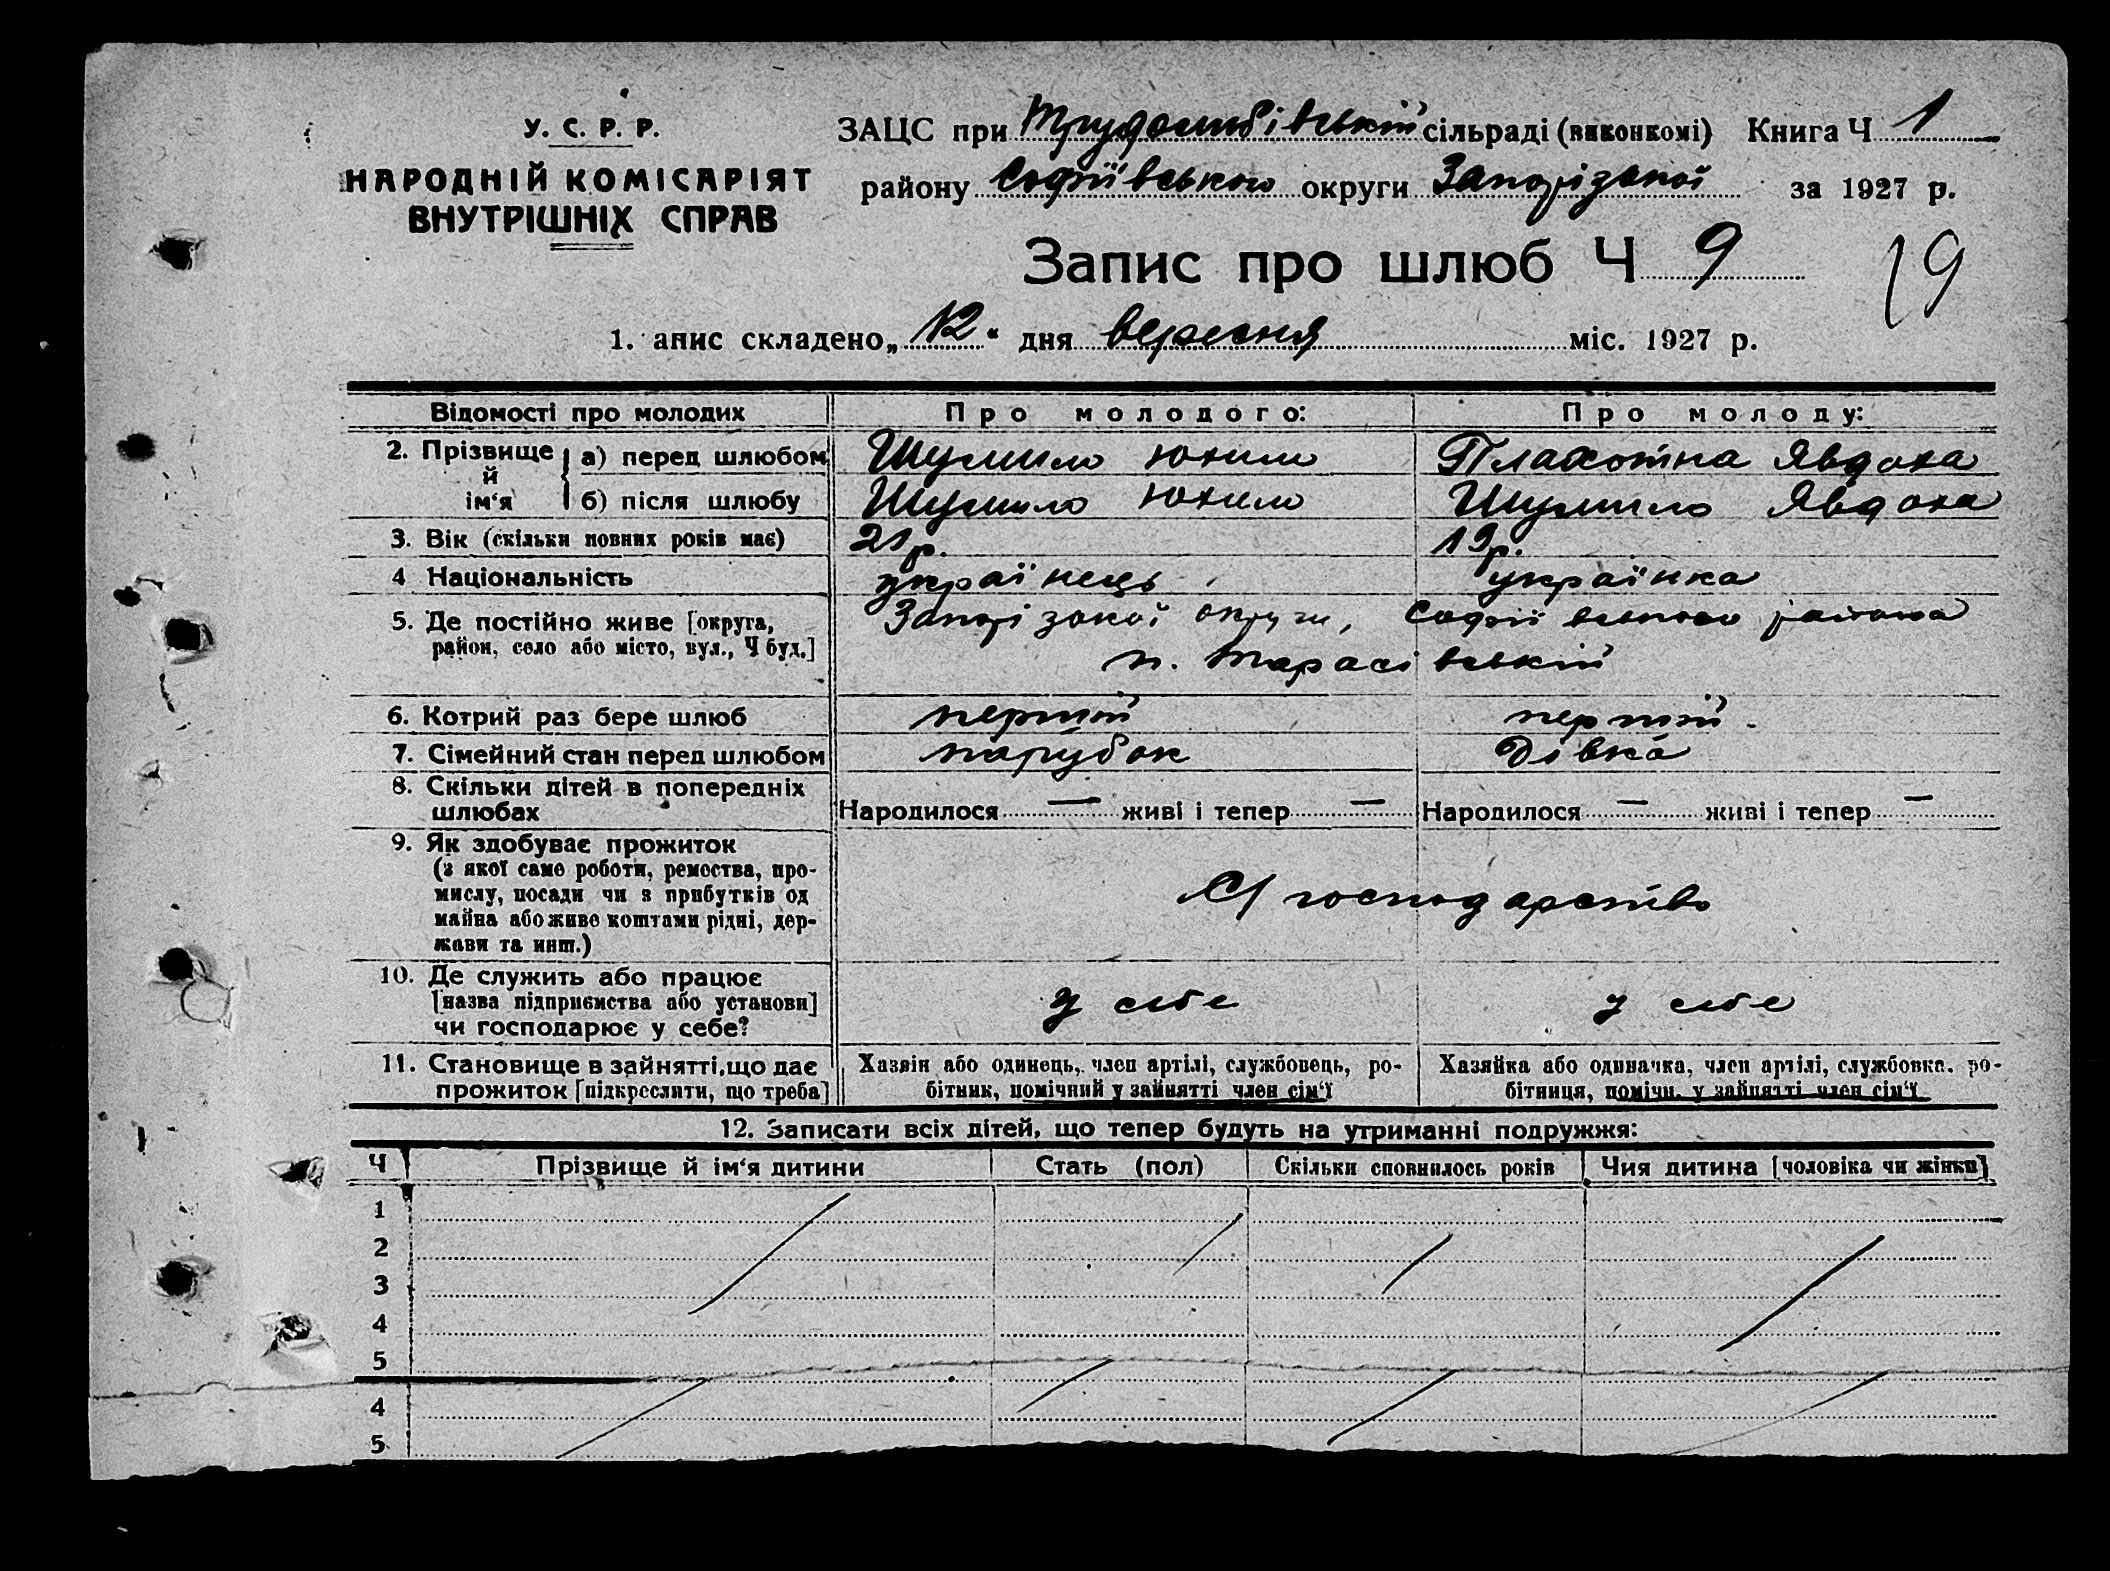 У. С. Р. Р.
НАРОДНІЙ КОМІСАРІЯТ
ВНУТРІШНІХ СПРАВ
ЗАЦС при Трудолюбівській сільраді (виконкомі) Книга Ч 1
району Софіївського округи Запорізької за 1927 р.
Запис про шлюб Ч 9
19
1. апис складено „12“ дня вересня міс. 1927 р.
Відомості про молодих Про молодого: Про молоду:
2. Прізвище й ім‘я а) перед шлюбом Шумило Юхим Плахотна Явдоха
б) після шлюбу Шумило Юхим Шумило Явдоха
3. Вік (скільки повних років має) 21 р. 19 р.
4 Національність українець українка
5. Де постійно живе [округа, Запорізької округи, Софіївського району
район, село або місто, вул., Ч буд.] Тарасівській
6. Котрий раз бере шлюб перший перший
7. Сімейний стан перед шлюбом парубок дівка
8. Скільки дітей в попередніх
шлюбах Народилося — живі і тепер — Народилося — живі і тепер —
9. Як здобуває прожиток
(з якої саме роботи, ремества, про-
мислу, посади чи з прибутків од
майна або живе коштами рідні, дер-
жави та инш.)
С/господарство
10. Де служить або працює
[назва підприємства або установи]
чи господарює у себе?
у себе у себе
11. Становище в зайнятті, що дає
прожиток [підкреслити, що треба]
Хазяїн або одинець, член артілі, службовець, ро-
бітник, помічний у зайнятті член сім‘ї
Хазяйка або одиначка, член артілі, службовка, ро-
бітниця, помічн. у зайнятті член сім‘ї
12. Записати всіх дітей, що тепер будуть на утриманні подружжя:
Ч Прізвище й ім‘я дитини Стать (пол) Скільки сповнилось років Чия дитина [чоловіка чи жінки]
1
2
3
4
5
4
5